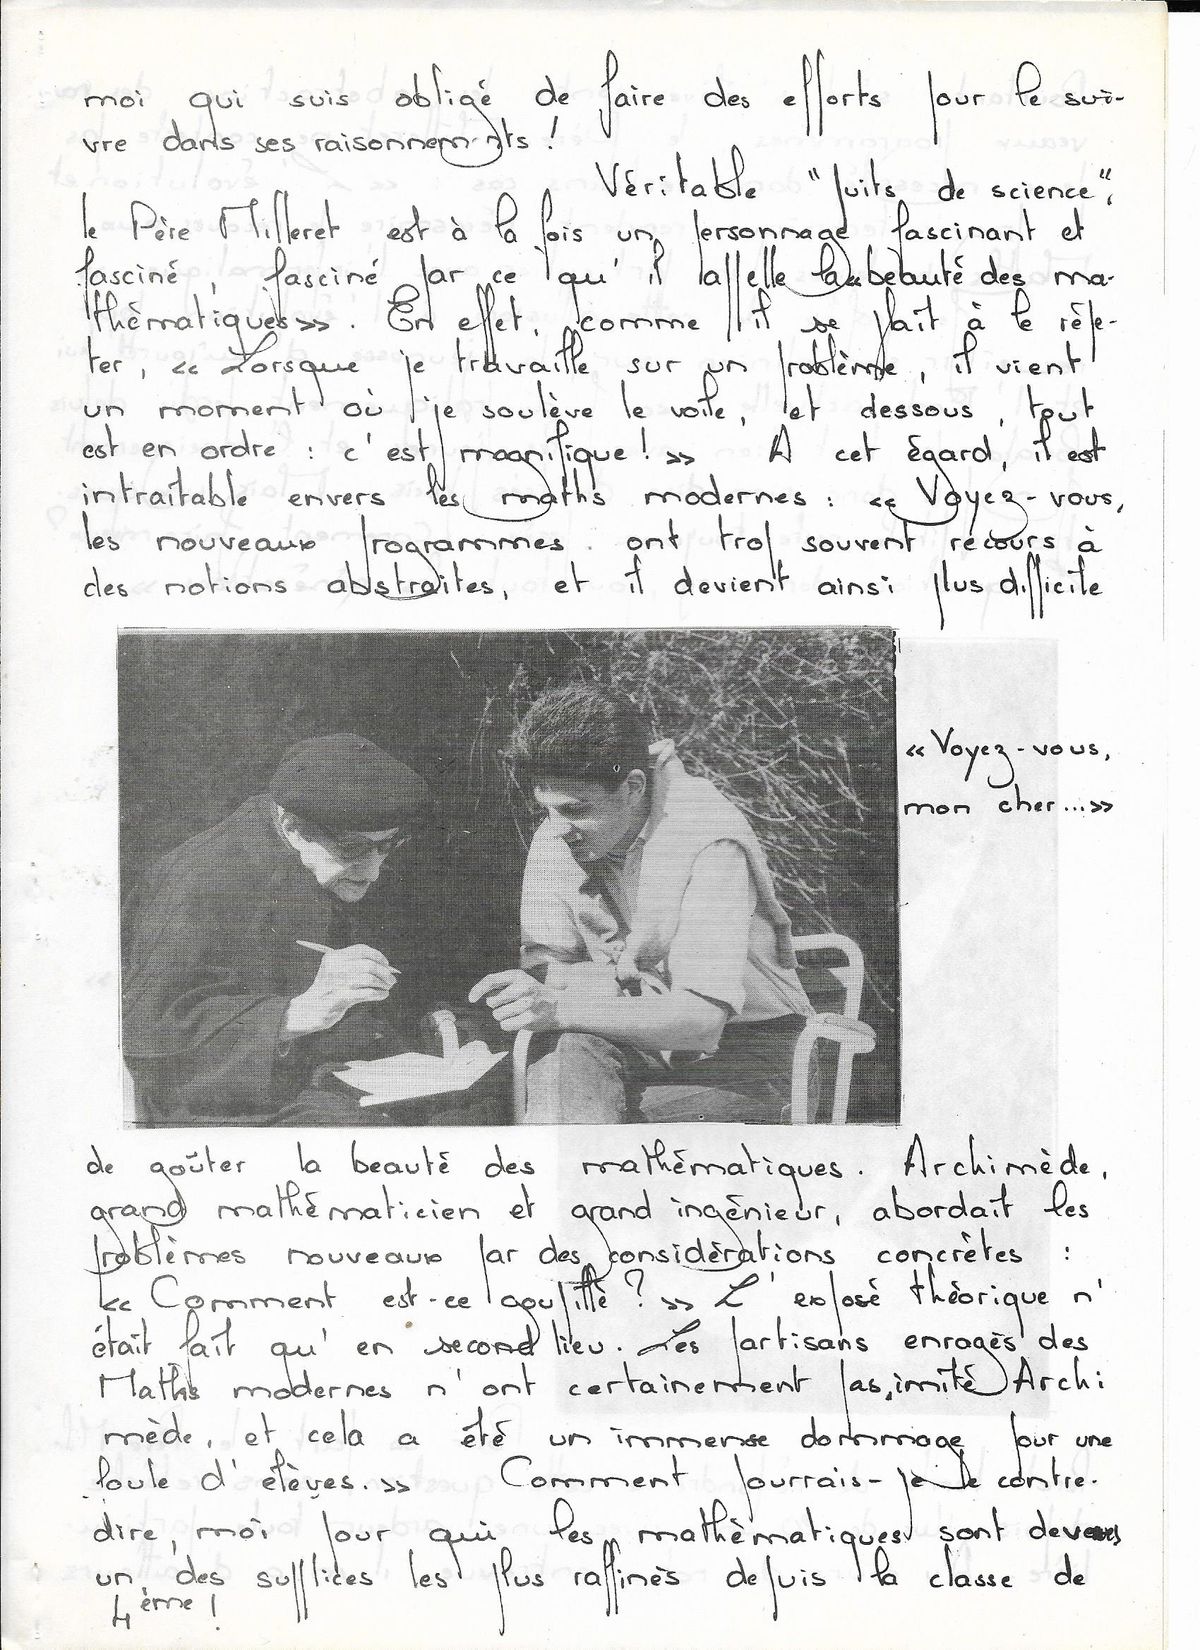 moi qui suis obligé de faire des efforts pour le sui-
vre dans ses raisonnements !
Véritable "puits de science",
le Père Milleret est à la fois un personnage fascinant et
fasciné, fasciné par ce qu'il appelle la « beauté des ma-
thématiques ». En effet, comme il se plait à le répé-
ter, « Lorsque je travaille sur un problème, il vient
un moment où je soulève le voile, et dessous, tout
est en ordre : c'est magnifique ! » A cet égard, il est
intraitable envers les maths modernes : « Voyez-vous,
les nouveaux programmes ont trop souvent recours à
des notions abstraites, et il devient ainsi plus difficile
« Voyez-vous,
mon cher... »
de goûter la beauté des mathématiques. Archimède,
grand mathématicien et grand ingénieur, abordait les
problèmes nouveaux par des considérations concrètes :
« Comment est-ce goupillé ? » L'exposé théorique n'
était fait qu'en second lieu. Les partisans enragés des
Maths modernes n'ont certainement pas imité Archi
mède, et cela a été un immense dommage pour une
foule d'élèves. » Comment pourrais-je le contre-
dire, moi pour qui les mathématiques sont devenues
un des supplices les plus raffinés depuis la classe de
4ème !